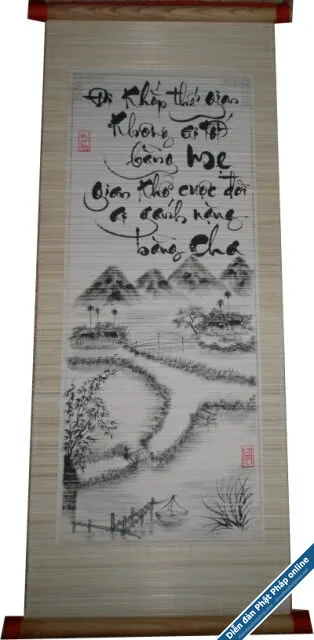 Đi khắp thế gian
Không ai tốt
bằng Mẹ
gian khổ cuộc đời
ai gánh nặng
bằng cha
Diễn đàn Phật Pháp online